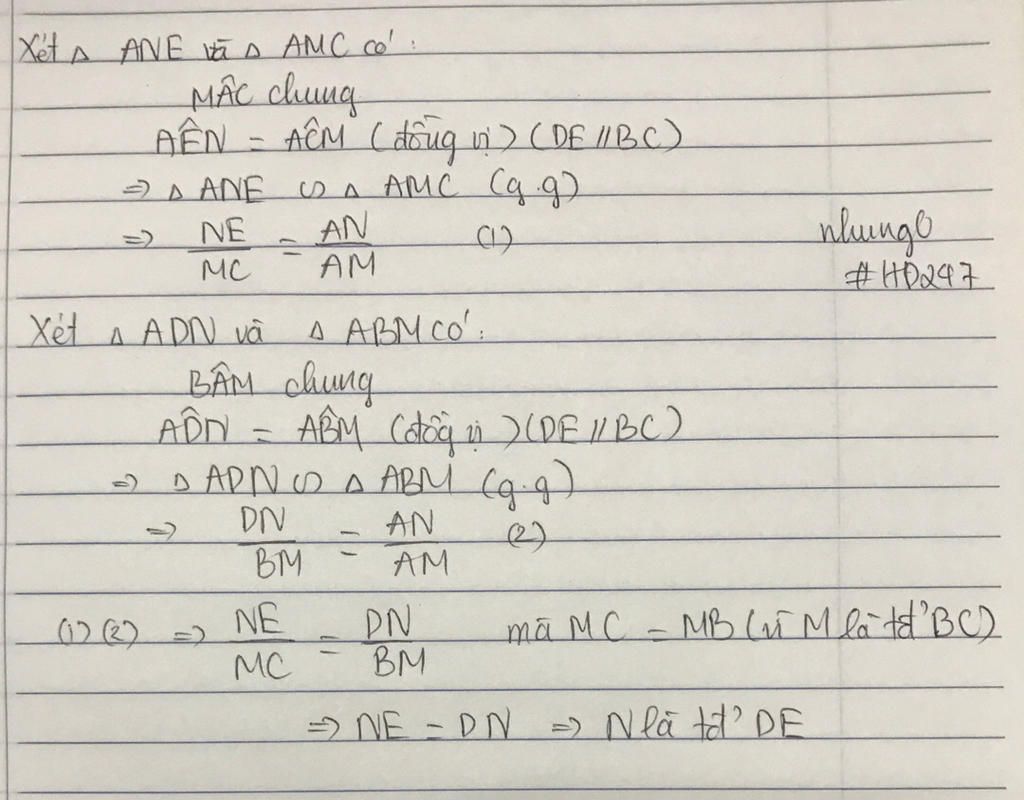 Xét Δ ANE và Δ AMC có:
MÂC chung
AÊN = AĈM (đồng vị) (DE // BC)
⇒ Δ ANE ∽ Δ AMC (g.g)
⇒ NE/MC = AN/AM (1)
nhung
#HD247
Xét Δ ADN và Δ ABM có:
BÂM chung
AD̂N = AB̂M (đồg vị) (DE // BC)
⇒ Δ ADN ∽ Δ ABM (g.g)
⇒ DN/BM = AN/AM (2)
(1) (2) ⇒ NE/MC = DN/BM mà MC = MB (vì M là tđ' BC)
⇒ NE = DN ⇒ N là tđ' DE